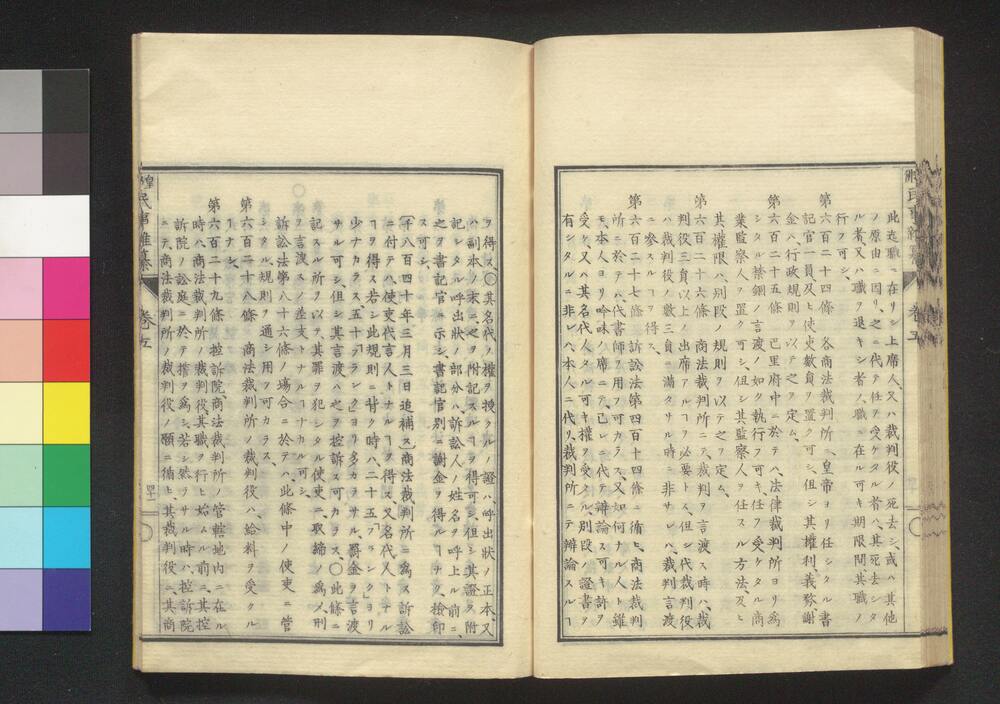 此在職ニ在リシ上席人、又ハ裁判役ノ死去シ、或ハ其他
ノ原由ニ因リ、之ニ代テ任ヲ受ケタル者ハ、其死去シタ
ル者、又ハ職ヲ退キシ者ノ職ニ在ル可キ期限間其職ノ
行フ可シ、
第六百二十四條 各商法裁判所ニ皇帝ヨリ任シタル書
記官一員及ヒ使吏數員ヲ置ク可シ、但シ其權利、義務、謝
金ハ、行政規則ヲ以テ之ヲ定ム、
第六百二十五條 巴里府中ニ於テハ、法律裁判所ヨリ為
シタル禁錮ノ言渡ノ如ク執行フ可キ任ヲ受ケタル商
業監察人ヲ置ク可シ、但シ其監察人ヲ任スル方法、及ヒ
其權限ハ、別段ノ規則ヲ以テ之ヲ定ム、
第六百二十六條 商法裁判所ニテ、裁判ヲ言渡ス時ハ、裁
判役三員以上ノ出席アルヿヲ必要トス、但シ代裁判役
ハ裁判役ノ數三員ニ滿タサル時ニ非サレハ、裁判言渡
ニ參スルヿヲ得ス、
第六百二十七條 訴訟法第四百十四條ニ循ヒ、商法裁判
所ニ於テハ、代書師ヲ用フ可カラス、又如何ナル人ト雖
モ、本人ヨリ吟味ノ席ニテ、己レニ代テ辯論ス可キ許ヲ
受ケ、又ハ其名代人タル可キ權ヲ受クル、別段ノ證書ヲ
有シタルニ非レハ、本人ニ代リ、裁判所ニテ辨論スルヿ
ヲ得ス、〇其名代ノ權ヲ授クルノ證ハ、呼出狀ノ正本、又
ハ副本ノ末ニ之ヲ附記スルヿヲ得可シ、但シ其證ヲ附
記シタル呼出狀ノ部分ハ、訴訟人ノ姓名ヲ呼上ル前ニ、
之ヲ書記官ニ示シ、書記官別ニ謝金ヲ得ルヿナク、檢印
ス可シ、
〔千八百四十年三月三日追補ス〕商法裁判所ニ為ス訴訟
ニ付テハ、使吏代言人トナルヿヲ得ス、又名代人トナル
ヿヲ得ス、若シ此規則ニ背ク時ハ、二十五「フランク」ヨリ
少ナカラス、五十「フランク」ヨリ多カラサル、罰金ヲ言渡
サル可シ、但シ其言渡ハ之ヲ控訴ス可カラス、〇此條ニ
記スル所ヲ以テ其罪ヲ犯シタル使吏ニ、取締ノ為メ、刑
ヲ言渡スノ差支トナルヿナカル可シ、
訴訟法第八十六條ノ場合ニ於テハ、此條中ノ使吏ニ管
シタル、規則ヲ通シ用フ可カラス、
第六百二十八條 商法裁判所ノ裁判役ハ、給料ヲ受クル
ヿナシ、
第六百二十九條 控訴院、商法裁判所ノ管轄地内ニ在ル
時ハ、商法裁判所ノ裁判役、其職ヲ行ヒ始ムル前ニ、其控
訴院ノ訟庭ニ於テ誓ヲ為シ、若シ然ラサル時ハ、控訴院
ニテ、商法裁判所ノ裁判役ノ願ニ循ヒ、其裁判役ニ、其商
民事雜纂
卷五